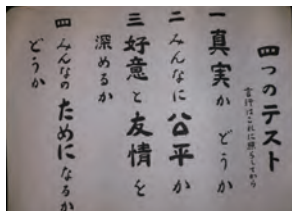 四つのテスト
言行はこれに照らしてから
一 真実か どうか
二 みんなに公平か
三 好意と友情を
深めるか
四 みんなのためになるか
どうか